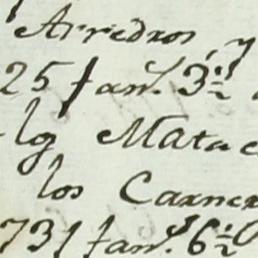 Arriedros, y
25 fan.s 3½
los Mata
los Carne
731 fan.s 6½